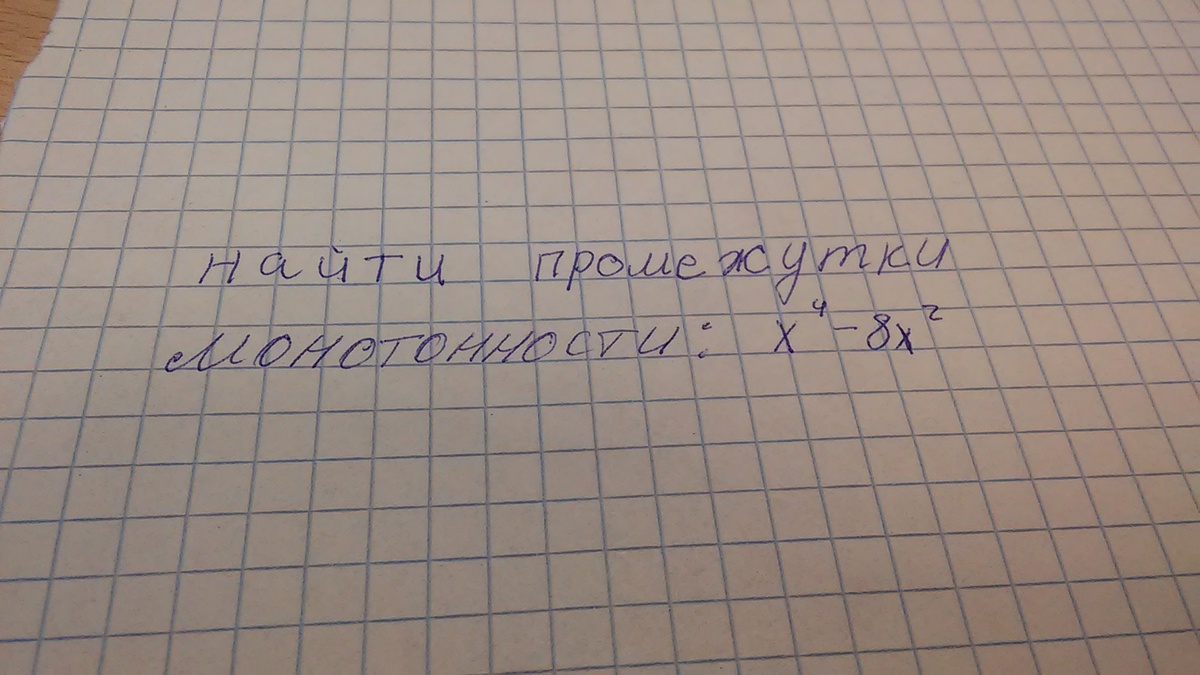 найти промежутки
монотонности: x⁴-8x²